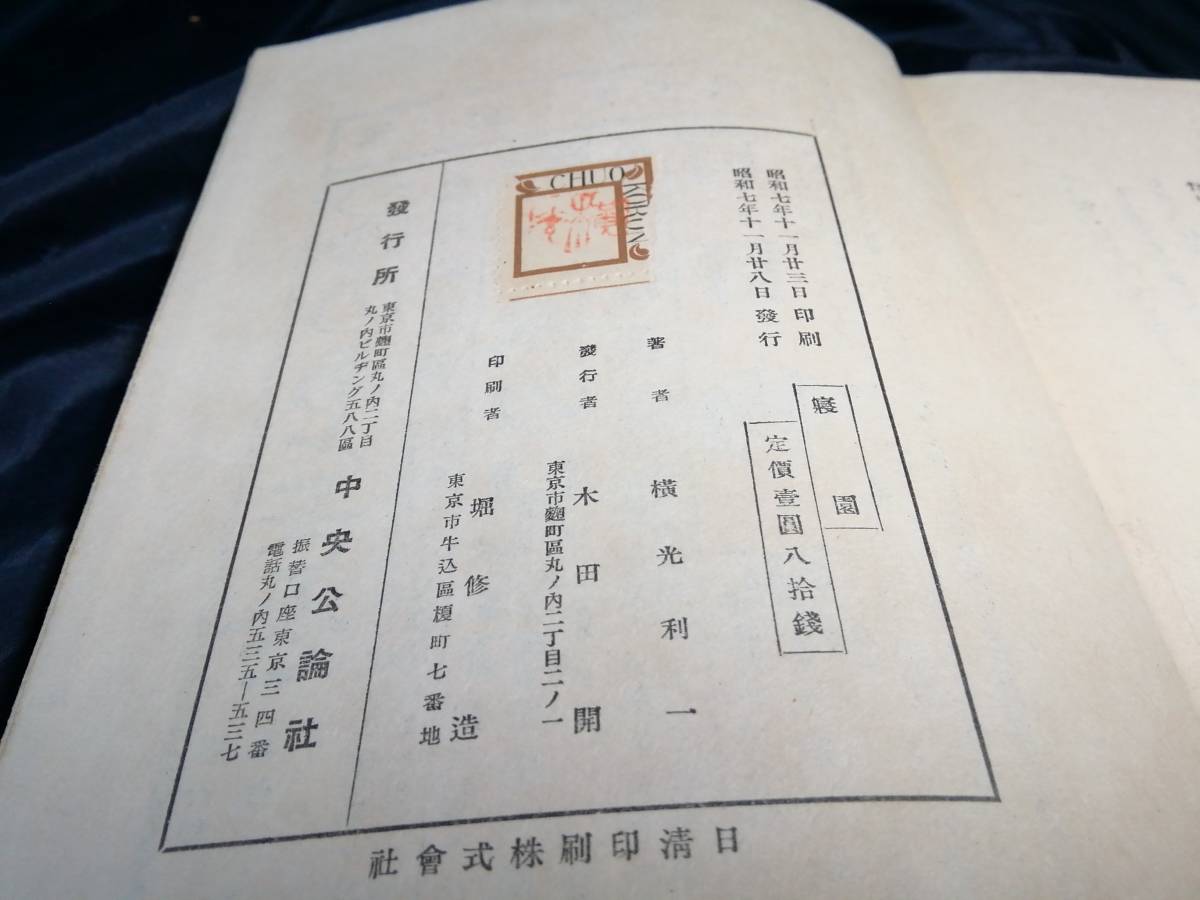 寢園
定價壹圓八拾錢
昭和七年十一月廿三日印刷
昭和七年十一月廿八日發行
CHUO
KORON
著者 橫光利一
發行者 木田開
東京市麴町區丸ノ內二丁目二ノ一
印刷者 堀修造
東京市牛込區榎町七番地
發行所 東京市麴町區丸ノ內二丁目
丸ノ內ビルヂング五八八區
中央公論社
振替口座東京三四番
電話丸ノ內五三五—五三七
日清印刷株式會社